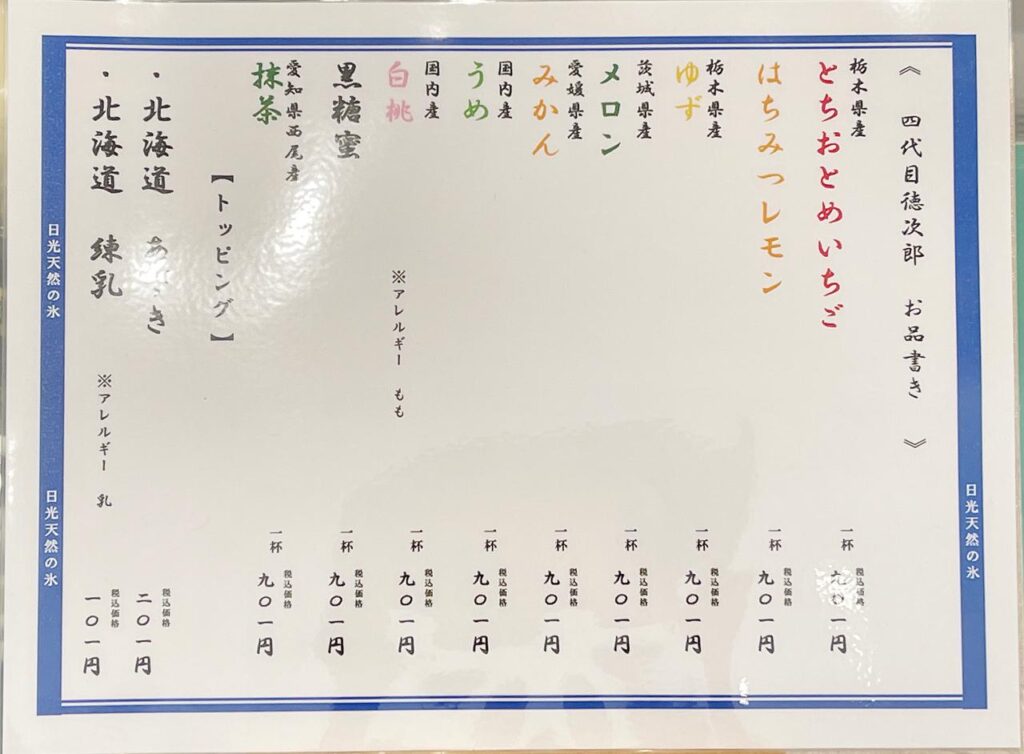 《 四代目徳次郎 お品書き 》
栃木県産
とちおとめいちご 一杯 税込価格 九〇一円
はちみつレモン 一杯 税込価格 九〇一円
栃木県産
ゆず 一杯 税込価格 九〇一円
茨城県産
メロン 一杯 税込価格 九〇一円
愛媛県産
みかん 一杯 税込価格 九〇一円
国内産
うめ 一杯 税込価格 九〇一円
国内産
白桃 ※アレルギー もも 一杯 税込価格 九〇一円
黒糖蜜 一杯 税込価格 九〇一円
愛知県西尾産
抹茶 一杯 税込価格 九〇一円
【トッピング】
・北海道 あずき 税込価格 二〇一円
・北海道 練乳 ※アレルギー 乳 税込価格 一〇一円
日光天然の氷
日光天然の氷
日光天然の氷